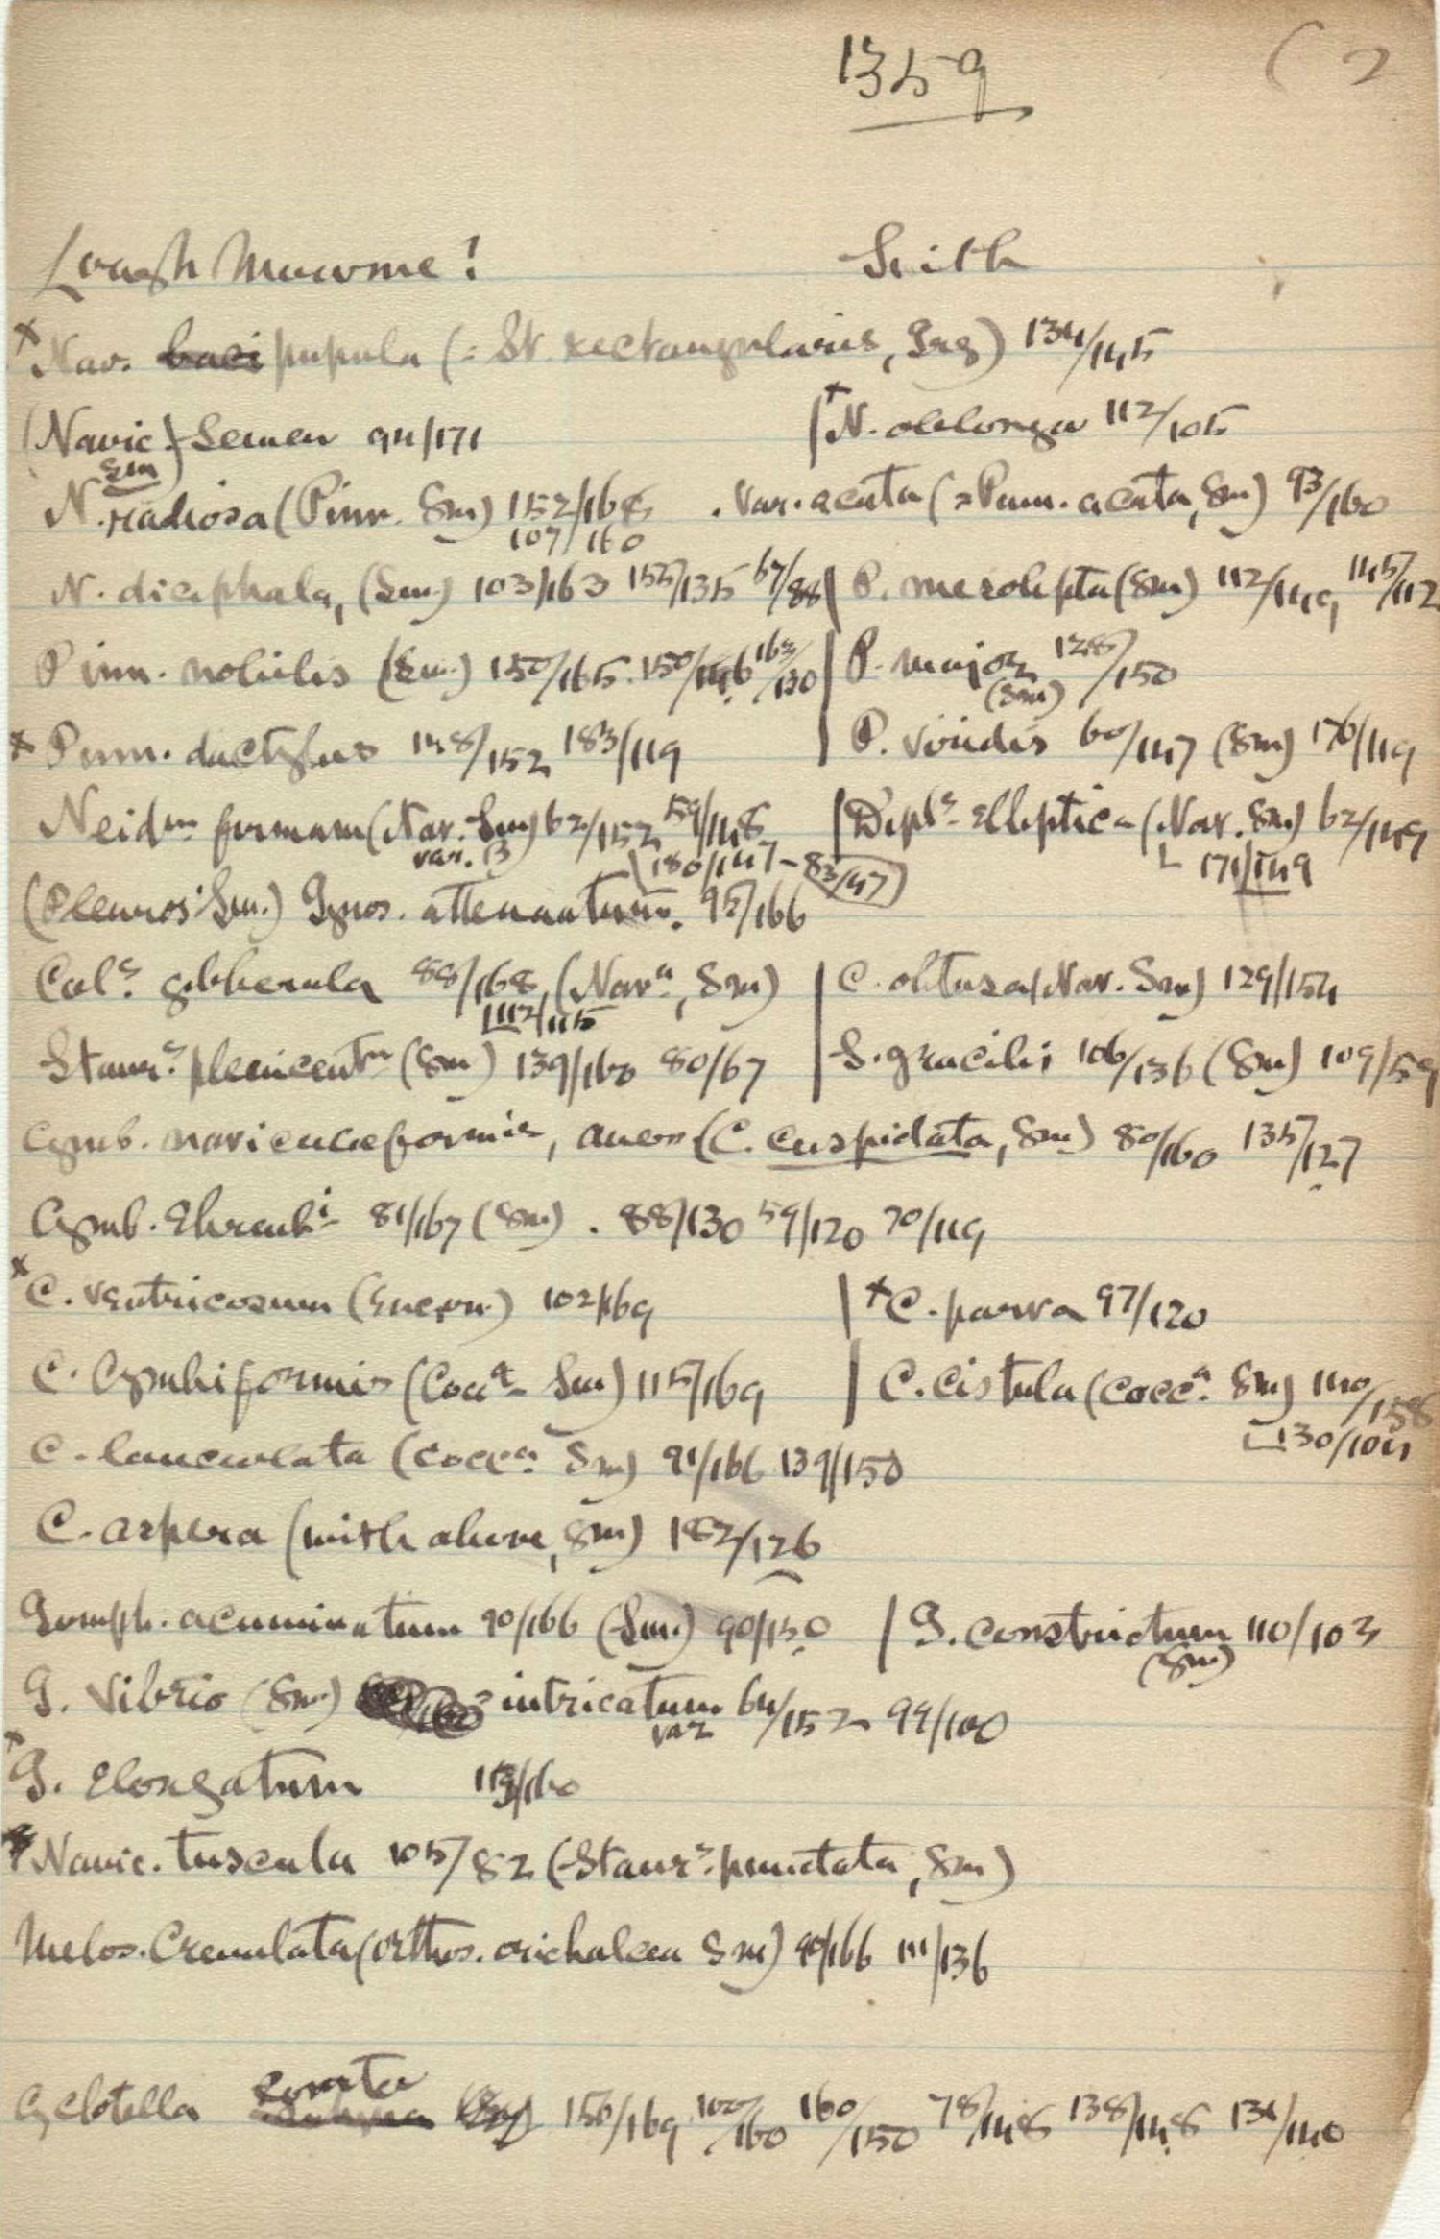 1359 (2
Lough Mourne! Smith
x Nav. baci pupula (= St. rectangularis, Greg) 134/145
(Navic.) Semen 94/171 | x N. oblonga 112/105
Sm
N. radiosa (Pinn. Sm) 152/168 . var. acuta (= Pinn. acuta, Sm) 93/160
107/160
N. dicephala, (Sm) 103/163 155/135 67/88 | P. mesolepta (Sm) 112/149 145/112
Pinn. nobilis (Sm.) 150/165. 150/146 163/120 | P. major 128/150
(Sm)
x Pinn. dactylus 148/152 183/119 | P. viridis 60/147 (Sm) 176/119
Neidm firmum (Nav. Sm) 62/152 59/148 | Dipls elliptica (Nav. Sm) 62/149
var. B 180/147 - 83/47 171/149
(Pleuros. Sm.) Gyros. attenuatum. 95/166
Cals. gibberula 88/168, (Nava, Sm) | C. obtusa (Nav. Sm) 129/154
112/115
Staurs. phenicentn (Sm) 139/160 80/67 | S. gracilis 106/136 (Sm) 109/59
Cymb. naviculaeformis, auers (C. cuspidata, Sm) 80/160 135/127
Cymb. Ehrenbi 81/167 (Sm) . 88/130 59/120 70/119
x C. ventricosum (Encyon.) 102/169 | x C. parva 97/120
C. Cymbiformis (Cocca Sm) 115/169 | C. cistula (Cocca. Sm) 140/158
130/104
C. lanceolata (Cocca. Sm) 91/166 139/150
C. aspera (with above, Sm) 182/126
Gomph. acuminatum 90/166 (Sm.) 90/150 | G. constrictum 110/103
(Sm)
G. Vibrio (Sm) = intricatum 64/152 99/100
var
x G. Elongatum 113/160
x Navic. tuscula 105/82 (Staurs. punctata, Sm)
Melos. Crenulata (Orthos. orichalcea Sm) 90/166 111/136
comta
Cyclotella 150/169 100/160 160/150 78/148 138/148 131/140